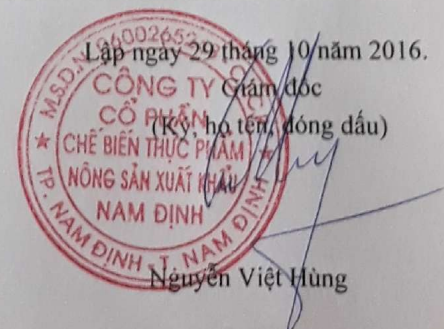 Lập ngày 29 tháng 10 năm 2016.
Giám đốc
(Ký, họ tên, đóng dấu)
CÔNG TY
CỔ PHẦN
CHẾ BIẾN THỰC PHẨM
NÔNG SẢN XUẤT KHẨU
NAM ĐỊNH
TP. NAM ĐỊNH - T. NAM ĐỊNH
Nguyễn Việt Hùng